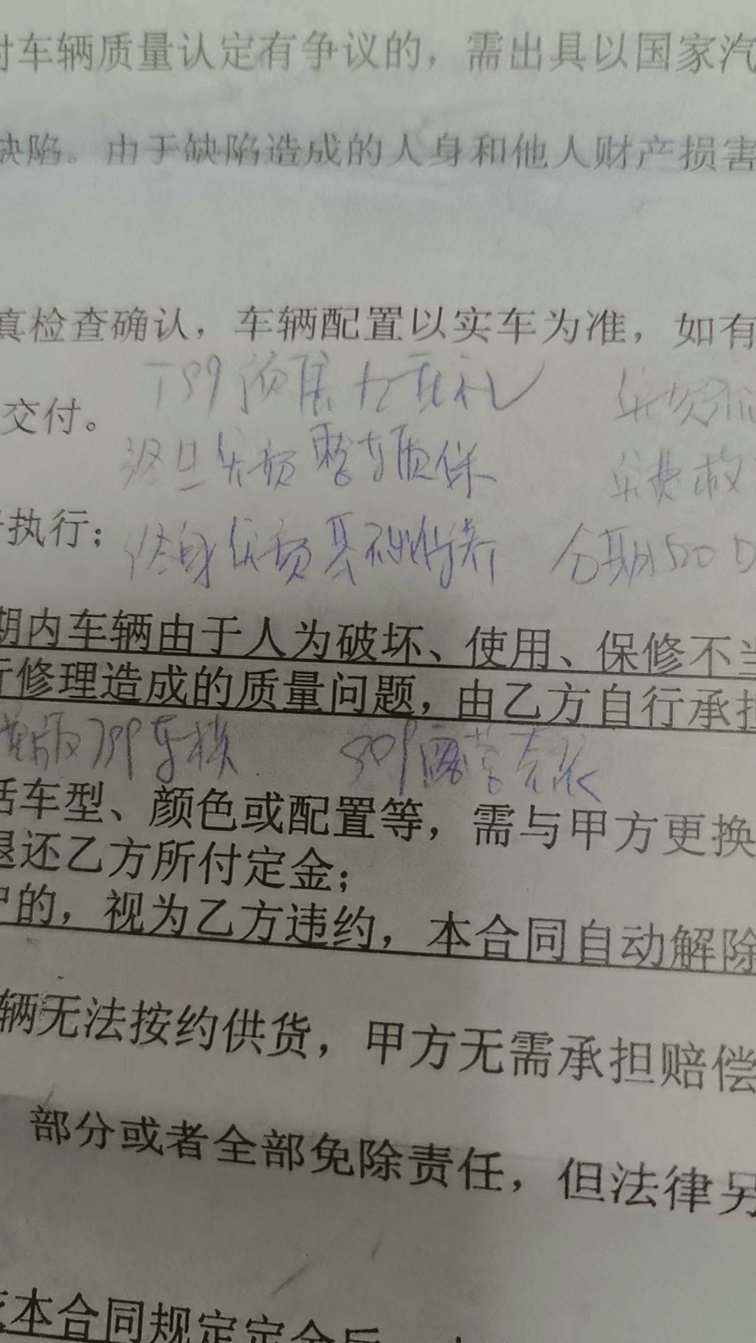 对车辆质量认定有争议的，需出具以国家汽
缺陷。由于缺陷造成的人身和他人财产损害
真检查确认，车辆配置以实车为准，如有
大礼
交付。
终身免费 整车质保
免费救
执行；
终身免费基础保养 分期500
期内车辆由于人为破坏、使用、保修不当
行修理造成的质量问题，由乙方自行承担
版799车模 509露营套装
括车型、颜色或配置等，需与甲方更换
退还乙方所付定金；
户的，视为乙方违约，本合同自动解除
辆无法按约供货，甲方无需承担赔偿
部分或者全部免除责任，但法律另
本合同规定定金后